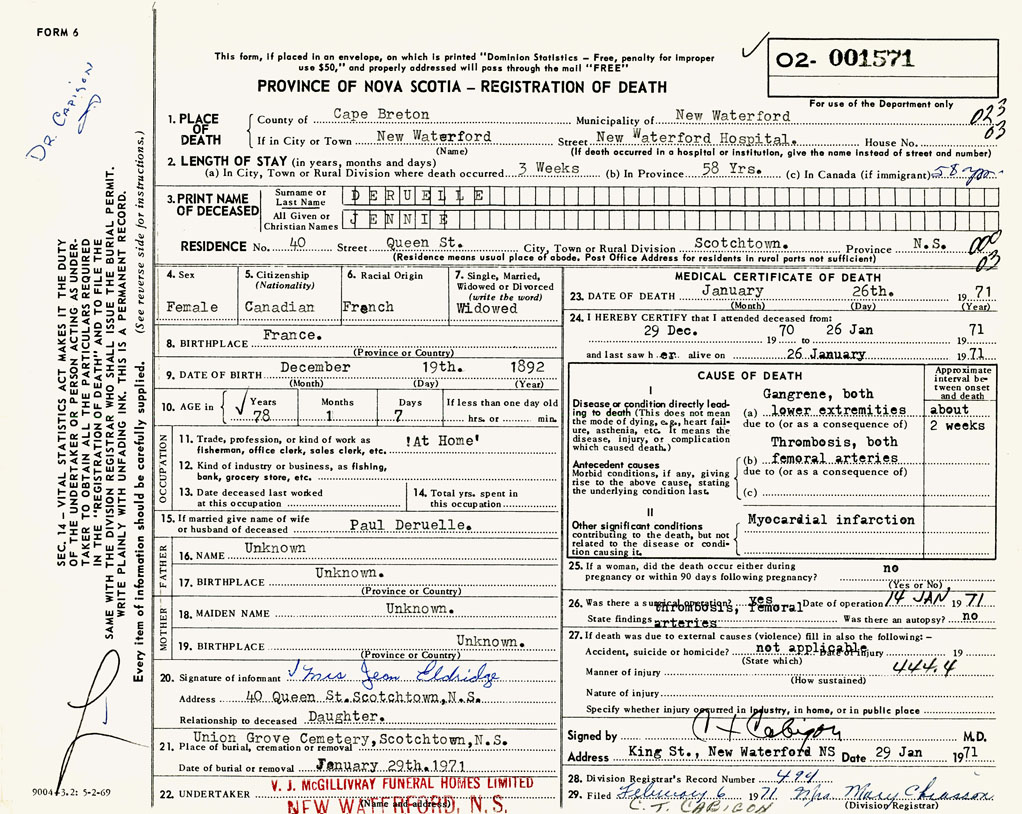 FORM 6
This form, if placed in an envelope, on which is printed "Dominion Statistics – Free, penalty for improper
use $50," and properly addressed will pass through the mail "FREE"
02- 001571
PROVINCE OF NOVA SCOTIA – REGISTRATION OF DEATH
For use of the Department only
DR. CABIGON
SEC. 14 – VITAL STATISTICS ACT MAKES IT THE DUTY
OF THE UNDERTAKER OR PERSON ACTING AS UNDER-
TAKER TO OBTAIN ALL THE PARTICULARS REQUIRED
IN THE "REGISTRATION OF DEATH" AND TO FILE THE
SAME WITH THE DIVISION REGISTRAR WHO SHALL ISSUE THE BURIAL PERMIT.
WRITE PLAINLY WITH UNFADING INK. THIS IS A PERMANENT RECORD.
Every item of information should be carefully supplied. (See reverse side for instructions.)
1. PLACE OF DEATH
County of Cape Breton Municipality of New Waterford 023
If in City or Town New Waterford Street New Waterford Hospital. House No. 03
(Name) (If death occurred in a hospital or institution, give the name instead of street and number)
2. LENGTH OF STAY (in years, months and days)
(a) In City, Town or Rural Division where death occurred 3 Weeks (b) In Province 58 Yrs. (c) In Canada (if immigrant) 58 yrs
3. PRINT NAME OF DECEASED
Surname or Last Name DERUELLE
All Given or Christian Names JENNIE
RESIDENCE No. 40 Street Queen St. City, Town or Rural Division Scotchtown. Province N.S. 000
(Residence means usual place of abode. Post Office Address for residents in rural parts not sufficient) 03
4. Sex
Female
5. Citizenship (Nationality)
Canadian
6. Racial Origin
French
7. Single, Married, Widowed or Divorced (write the word)
Widowed
8. BIRTHPLACE France.
(Province or Country)
9. DATE OF BIRTH December 19th. 1892
(Month) (Day) (Year)
10. AGE in Years Months Days If less than one day old
78 1 7 hrs. or min.
OCCUPATION
11. Trade, profession, or kind of work as !At Home'
fisherman, office clerk, sales clerk, etc.
12. Kind of industry or business, as fishing,
bank, grocery store, etc.
13. Date deceased last worked
at this occupation
14. Total yrs. spent in
this occupation
15. If married give name of wife
or husband of deceased Paul Deruelle.
FATHER
16. NAME Unknown
17. BIRTHPLACE Unknown.
(Province or Country)
MOTHER
18. MAIDEN NAME Unknown.
19. BIRTHPLACE Unknown.
(Province or Country)
20. Signature of informant Mrs Jean Eldridge
Address 40 Queen St.Scotchtown,N.S.
Relationship to deceased Daughter.
Union Grove Cemetery,Scotchtown,N.S.
21. Place of burial, cremation or removal
Date of burial or removal January 29th.1971
V. J. McGILLIVRAY FUNERAL HOMES LIMITED
22. UNDERTAKER NEW WATERFORD, N. S.
(Name and address)
9004-3.2: 5-2-69
MEDICAL CERTIFICATE OF DEATH
23. DATE OF DEATH January 26th. 1971
(Month) (Day) (Year)
24. I HEREBY CERTIFY that I attended deceased from:
29 Dec. 70 26 Jan 71
19 to 19
and last saw her alive on 26 January 1971
CAUSE OF DEATH
Approximate interval between onset and death
I
Disease or condition directly lead-
ing to death (This does not mean
the mode of dying, e.g., heart fail-
ure, asthenia, etc. It means the
disease, injury, or complication
which caused death.)
Gangrene, both
(a) lower extremities about
due to (or as a consequence of) 2 weeks
Antecedent causes
Morbid conditions, if any, giving
rise to the above cause, stating
the underlying condition last.
Thrombosis, both
(b) femoral arteries
due to (or as a consequence of)
(c)
II
Other significant conditions
contributing to the death, but not
related to the disease or condi-
tion causing it.
Myocardial infarction
25. If a woman, did the death occur either during
pregnancy or within 90 days following pregnancy? no
(Yes or No)
26. Was there a surgical operation? yes Date of operation 14 JAN 1971
thrombosis, femoral
State findings arteries Was there an autopsy? no
27. If death was due to external causes (violence) fill in also the following: –
Accident, suicide or homicide? not applicable Date of injury 19
(State which)
Manner of injury 444.4
(How sustained)
Nature of injury
Specify whether injury occurred in industry, in home, or in public place
Signed by C T Cabigon M.D.
Address King St., New Waterford NS Date 29 Jan 1971
28. Division Registrar's Record Number 494
29. Filed February 6 1971 Mrs Mary Chiasson
C. T. CABIGON (Division Registrar)